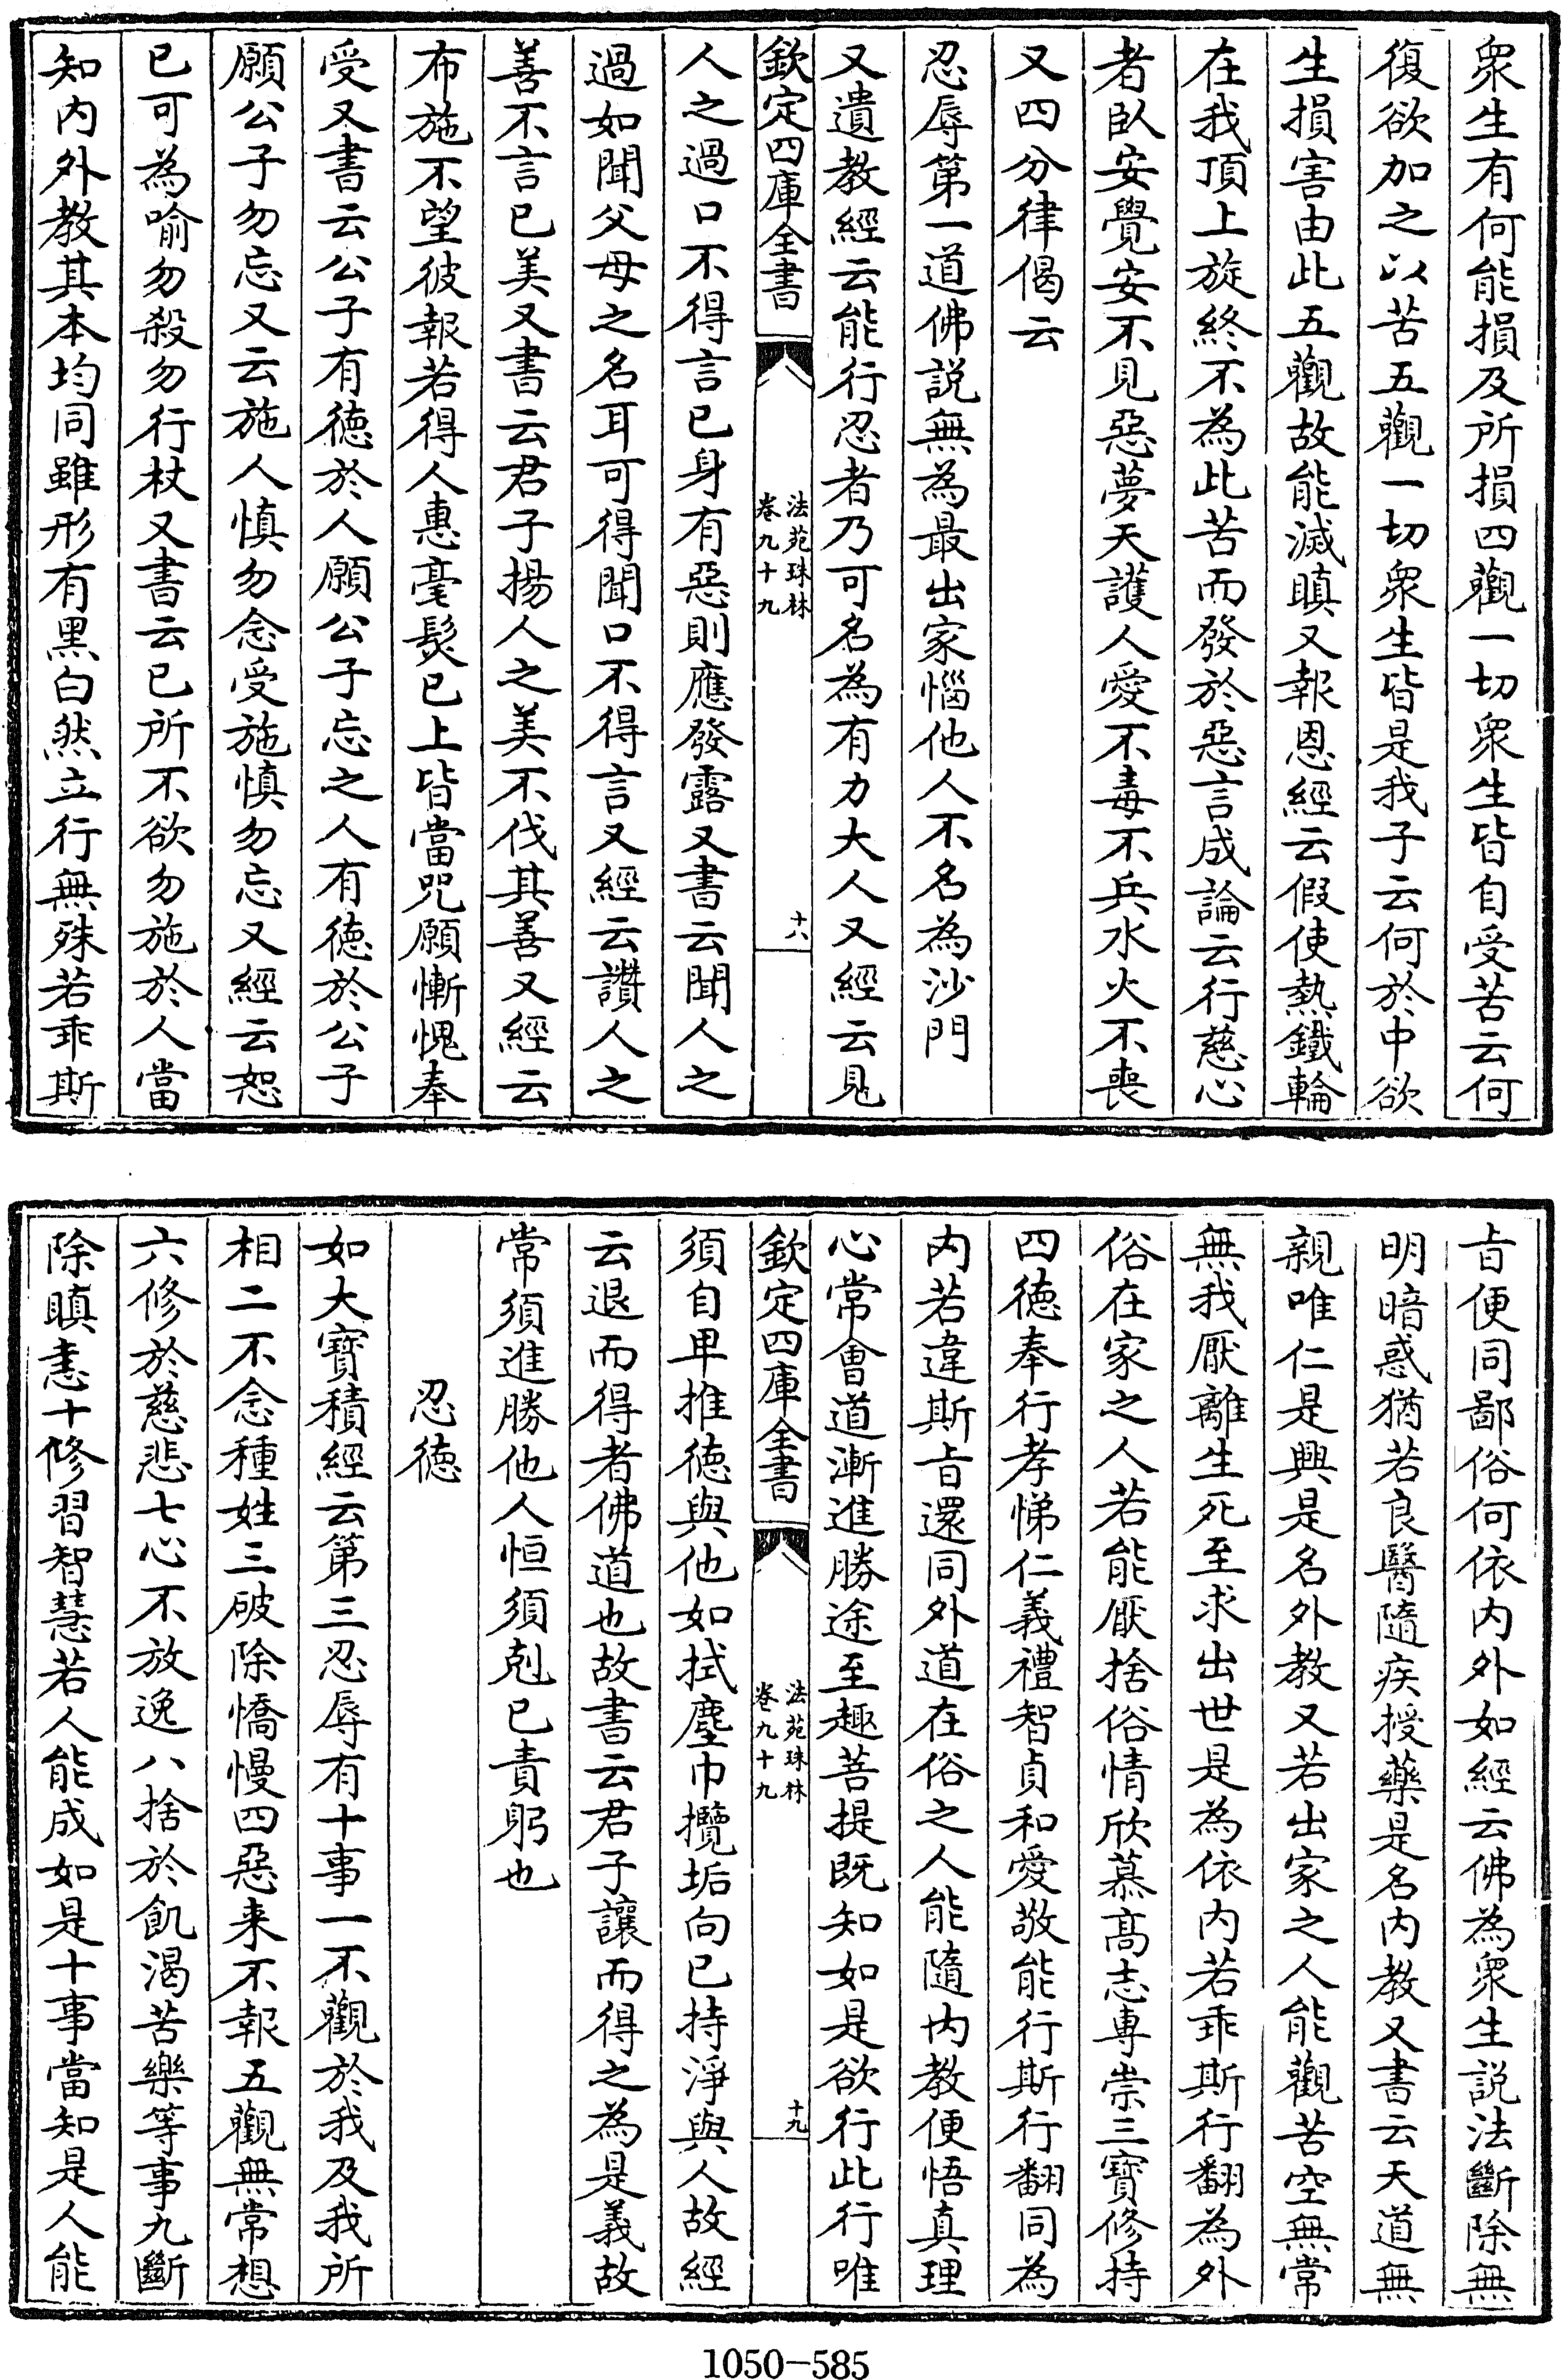 衆生有何能損及所損四觀一切衆生皆自受苦云何
復欲加之以苦五觀一切衆生皆是我子云何於中欲
生損害由此五觀故能滅瞋又報恩經云假使熱鐵輪
在我頂上旋終不為此苦而發於惡言成論云行慈心
者臥安覺安不見惡夢天護人愛不毒不兵水火不喪
又四分律偈云
忍辱第一道佛説無為最出家惱他人不名為沙門
又遺教經云能行忍者乃可名為有力大人又經云見
欽定四庫全書
法苑珠林
卷九十九
十八
人之過口不得言已身有惡則應發露又書云聞人之
過如聞父母之名耳可得聞口不得言又經云讚人之
善不言已美又書云君子揚人之美不伐其善又經云
布施不望彼報若得人惠毫髮已上皆當咒願慚愧奉
受又書云公子有徳於人願公子忘之人有徳於公子
願公子勿忘又云施人慎勿念受施慎勿忘又經云恕
已可為喻勿殺勿行杖又書云已所不欲勿施於人當
知内外教其本均同雖形有黑白然立行無殊若乖斯
㫖便同鄙俗何依内外如經云佛為衆生説法斷除無
明暗惑猶若良醫隨疾授藥是名内教又書云天道無
親唯仁是興是名外教又若出家之人能觀苦空無常
無我厭離生死至求出世是為依内若乖斯行翻為外
俗在家之人若能厭捨俗情欣慕髙志專崇三寳修持
四徳奉行孝悌仁義禮智貞和愛敬能行斯行翻同為
内若違斯㫖還同外道在俗之人能隨内教便悟真理
心常會道漸進勝途至趣菩提既知如是欲行此行唯
欽定四庫全書
法苑珠林
卷九十九
十九
須自卑推徳與他如拭塵巾攬垢向已持淨與人故經
云退而得者佛道也故書云君子讓而得之為是義故
常須進勝他人恒須剋已責躬也
忍徳
如大寳積經云第三忍辱有十事一不觀於我及我所
相二不念種姓三破除憍慢四惡来不報五觀無常想
六修於慈悲七心不放逸八捨於飢渴苦樂等事九斷
除瞋恚十修習智慧若人能成如是十事當知是人能
1050-585